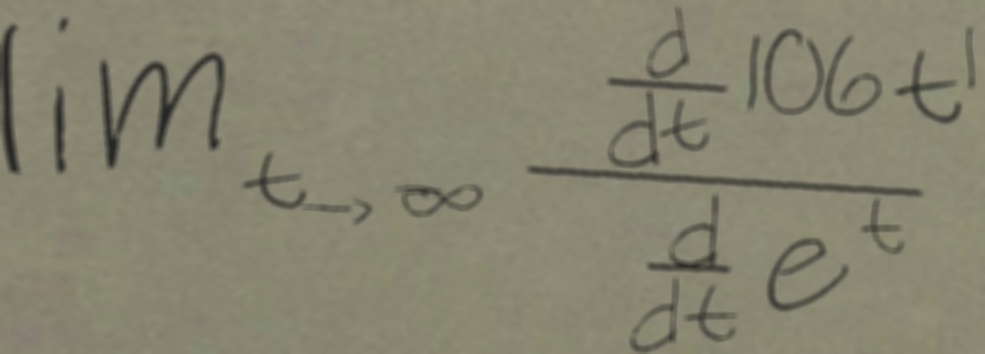 \lim_{t \to \infty} \frac{\frac{d}{dt} 106 t^1}{\frac{d}{dt} e^t}